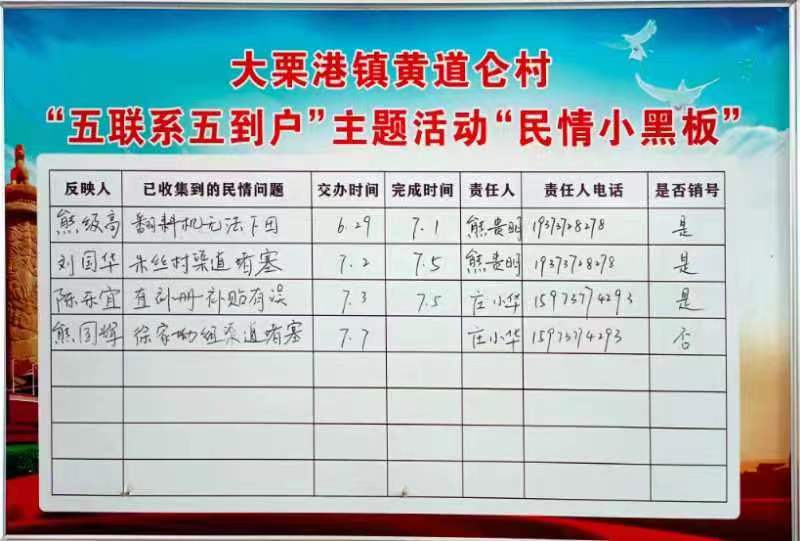 大栗港镇黄道仑村
“五联系五到户”主题活动“民情小黑板”
反映人 已收集到的民情问题 交办时间 完成时间 责任人 责任人电话 是否销号
熊级高 翻耕机无法下田 6.29 7.1 熊贵明 19373728278 是
刘国华 朱丝村渠道堵塞 7.2 7.5 熊贵明 19373728278 是
陈乐宜 直补册补贴有误 7.3 7.5 庄小华 15973774293 是
熊国辉 徐家坳组渠道堵塞 7.7 庄小华 15973774293 否